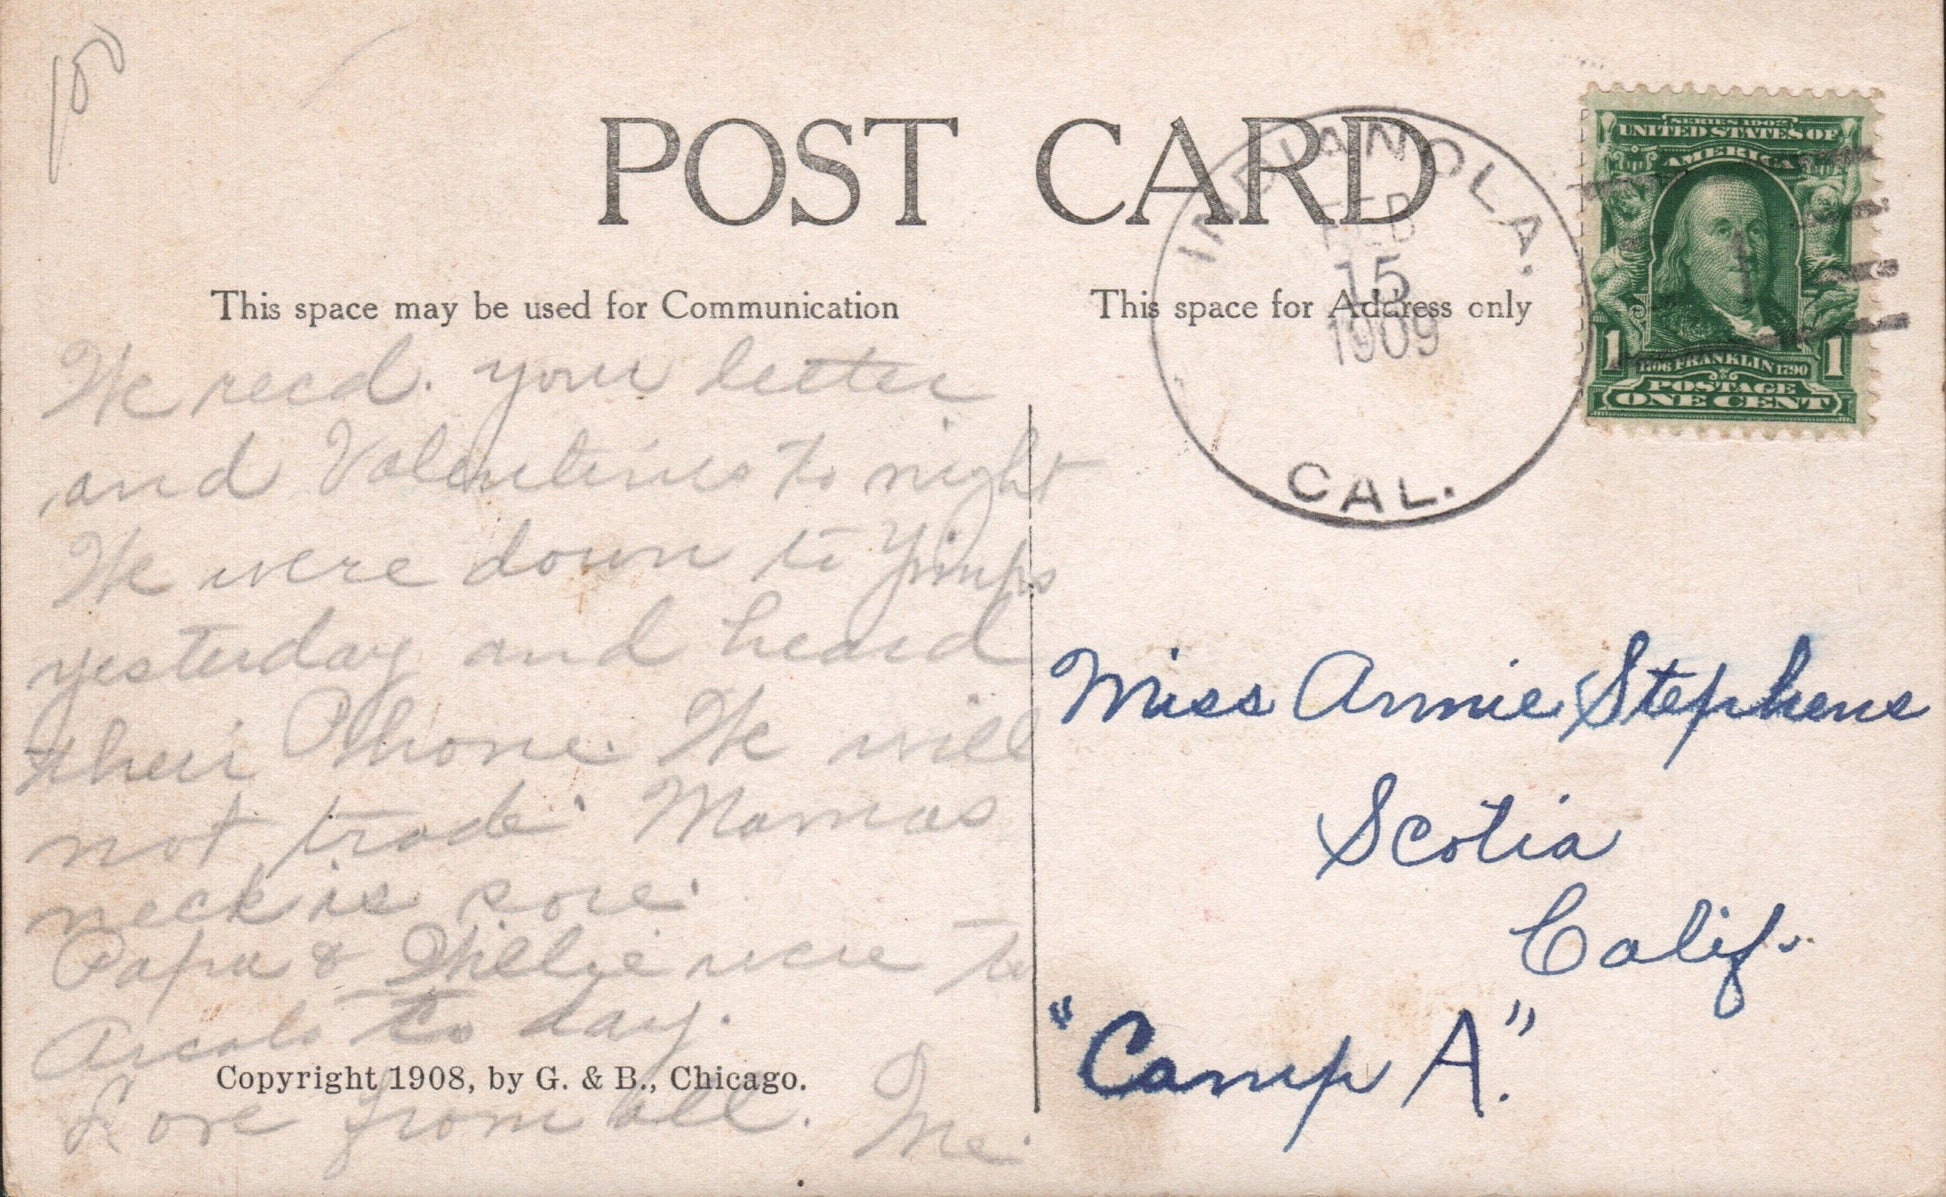 POST CARD
This space may be used for Communication
This space for Address only
INDIANOLA.
FEB
15
1909
CAL.
SERIES 1902
UNITED STATES OF
AMERICA
1 1706 FRANKLIN 1790 1
POSTAGE
ONE CENT
We recd. your letter
and Valentines to night
We were down to
yesterday and heard
their Phone. We will
not trade. Mamas
neck is sore.
Papa & Willie were to
to day.
Love from all. Me.
Copyright 1908, by G. & B., Chicago.
Miss Annie Stephens
Scotia
Calif.
"Camp A."